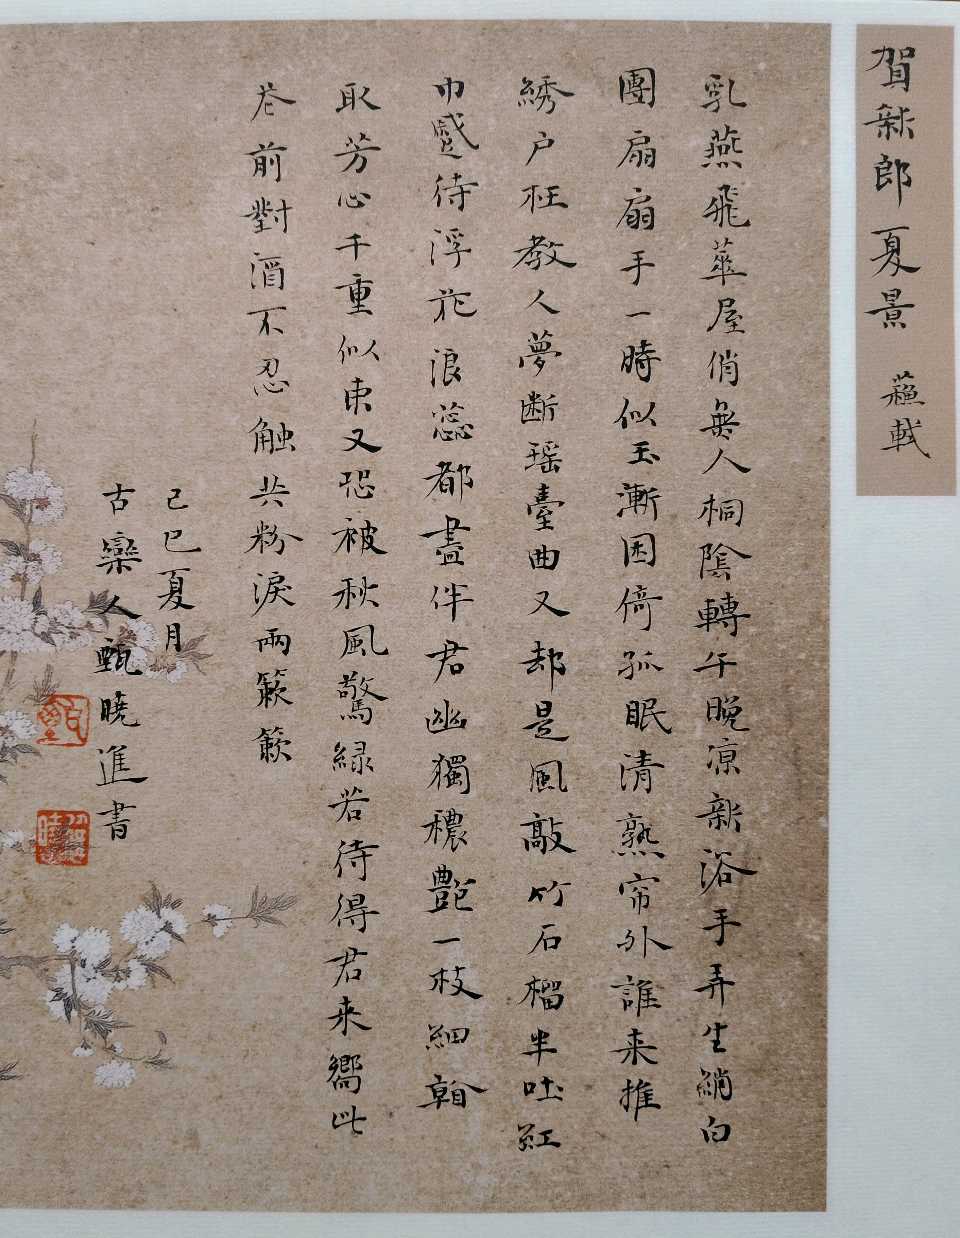 賀新郎 夏景 蘓軾
乳燕飛華屋俏無人桐陰轉午晚凉新浴手弄生綃白
團扇扇手一時似玉漸困倚孤眠清熟帘外誰来推
綉户枉教人夢断瑶臺曲又却是風敲竹石榴半吐紅
巾蹙待浮花浪蕊都盡伴君幽獨穠艷一枝細㸔
取芳心千重似束又恐被秋風驚緑若待得君来嚮此
花前對酒不忍触共粉淚兩簌簌
己巳夏月
古欒人甄曉進書
甄